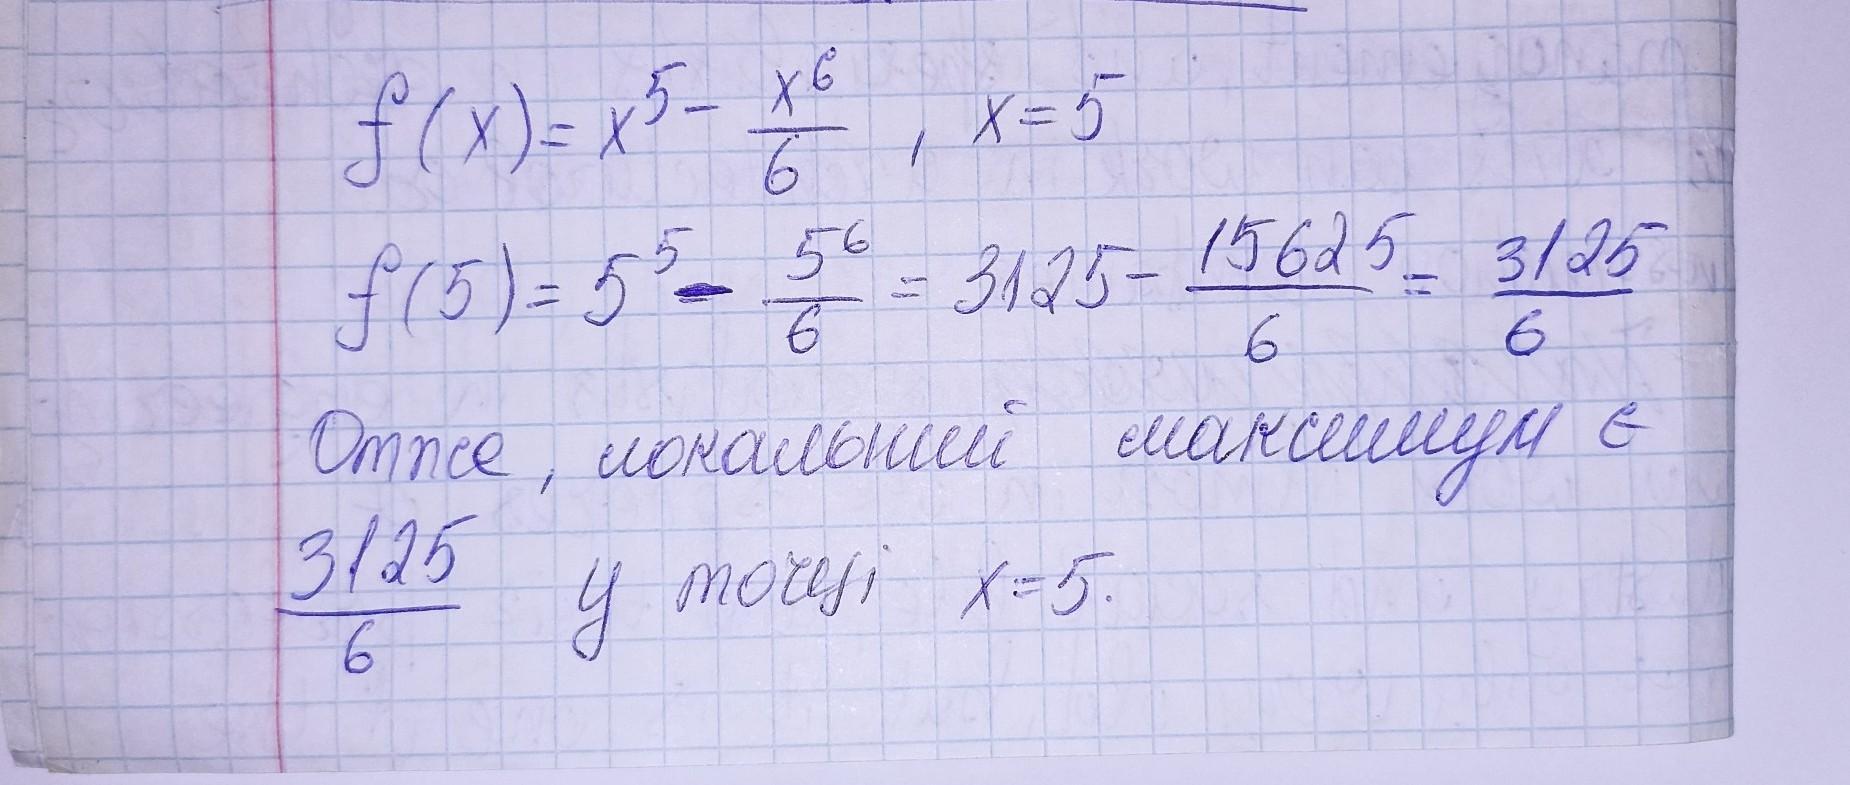 f(x) = x⁵ - x⁶/6, x = 5
f(5) = 5⁵ - 5⁶/6 = 3125 - 15625/6 = 3125/6
Отже, локальний максимум є
3125/6 у точці x = 5.